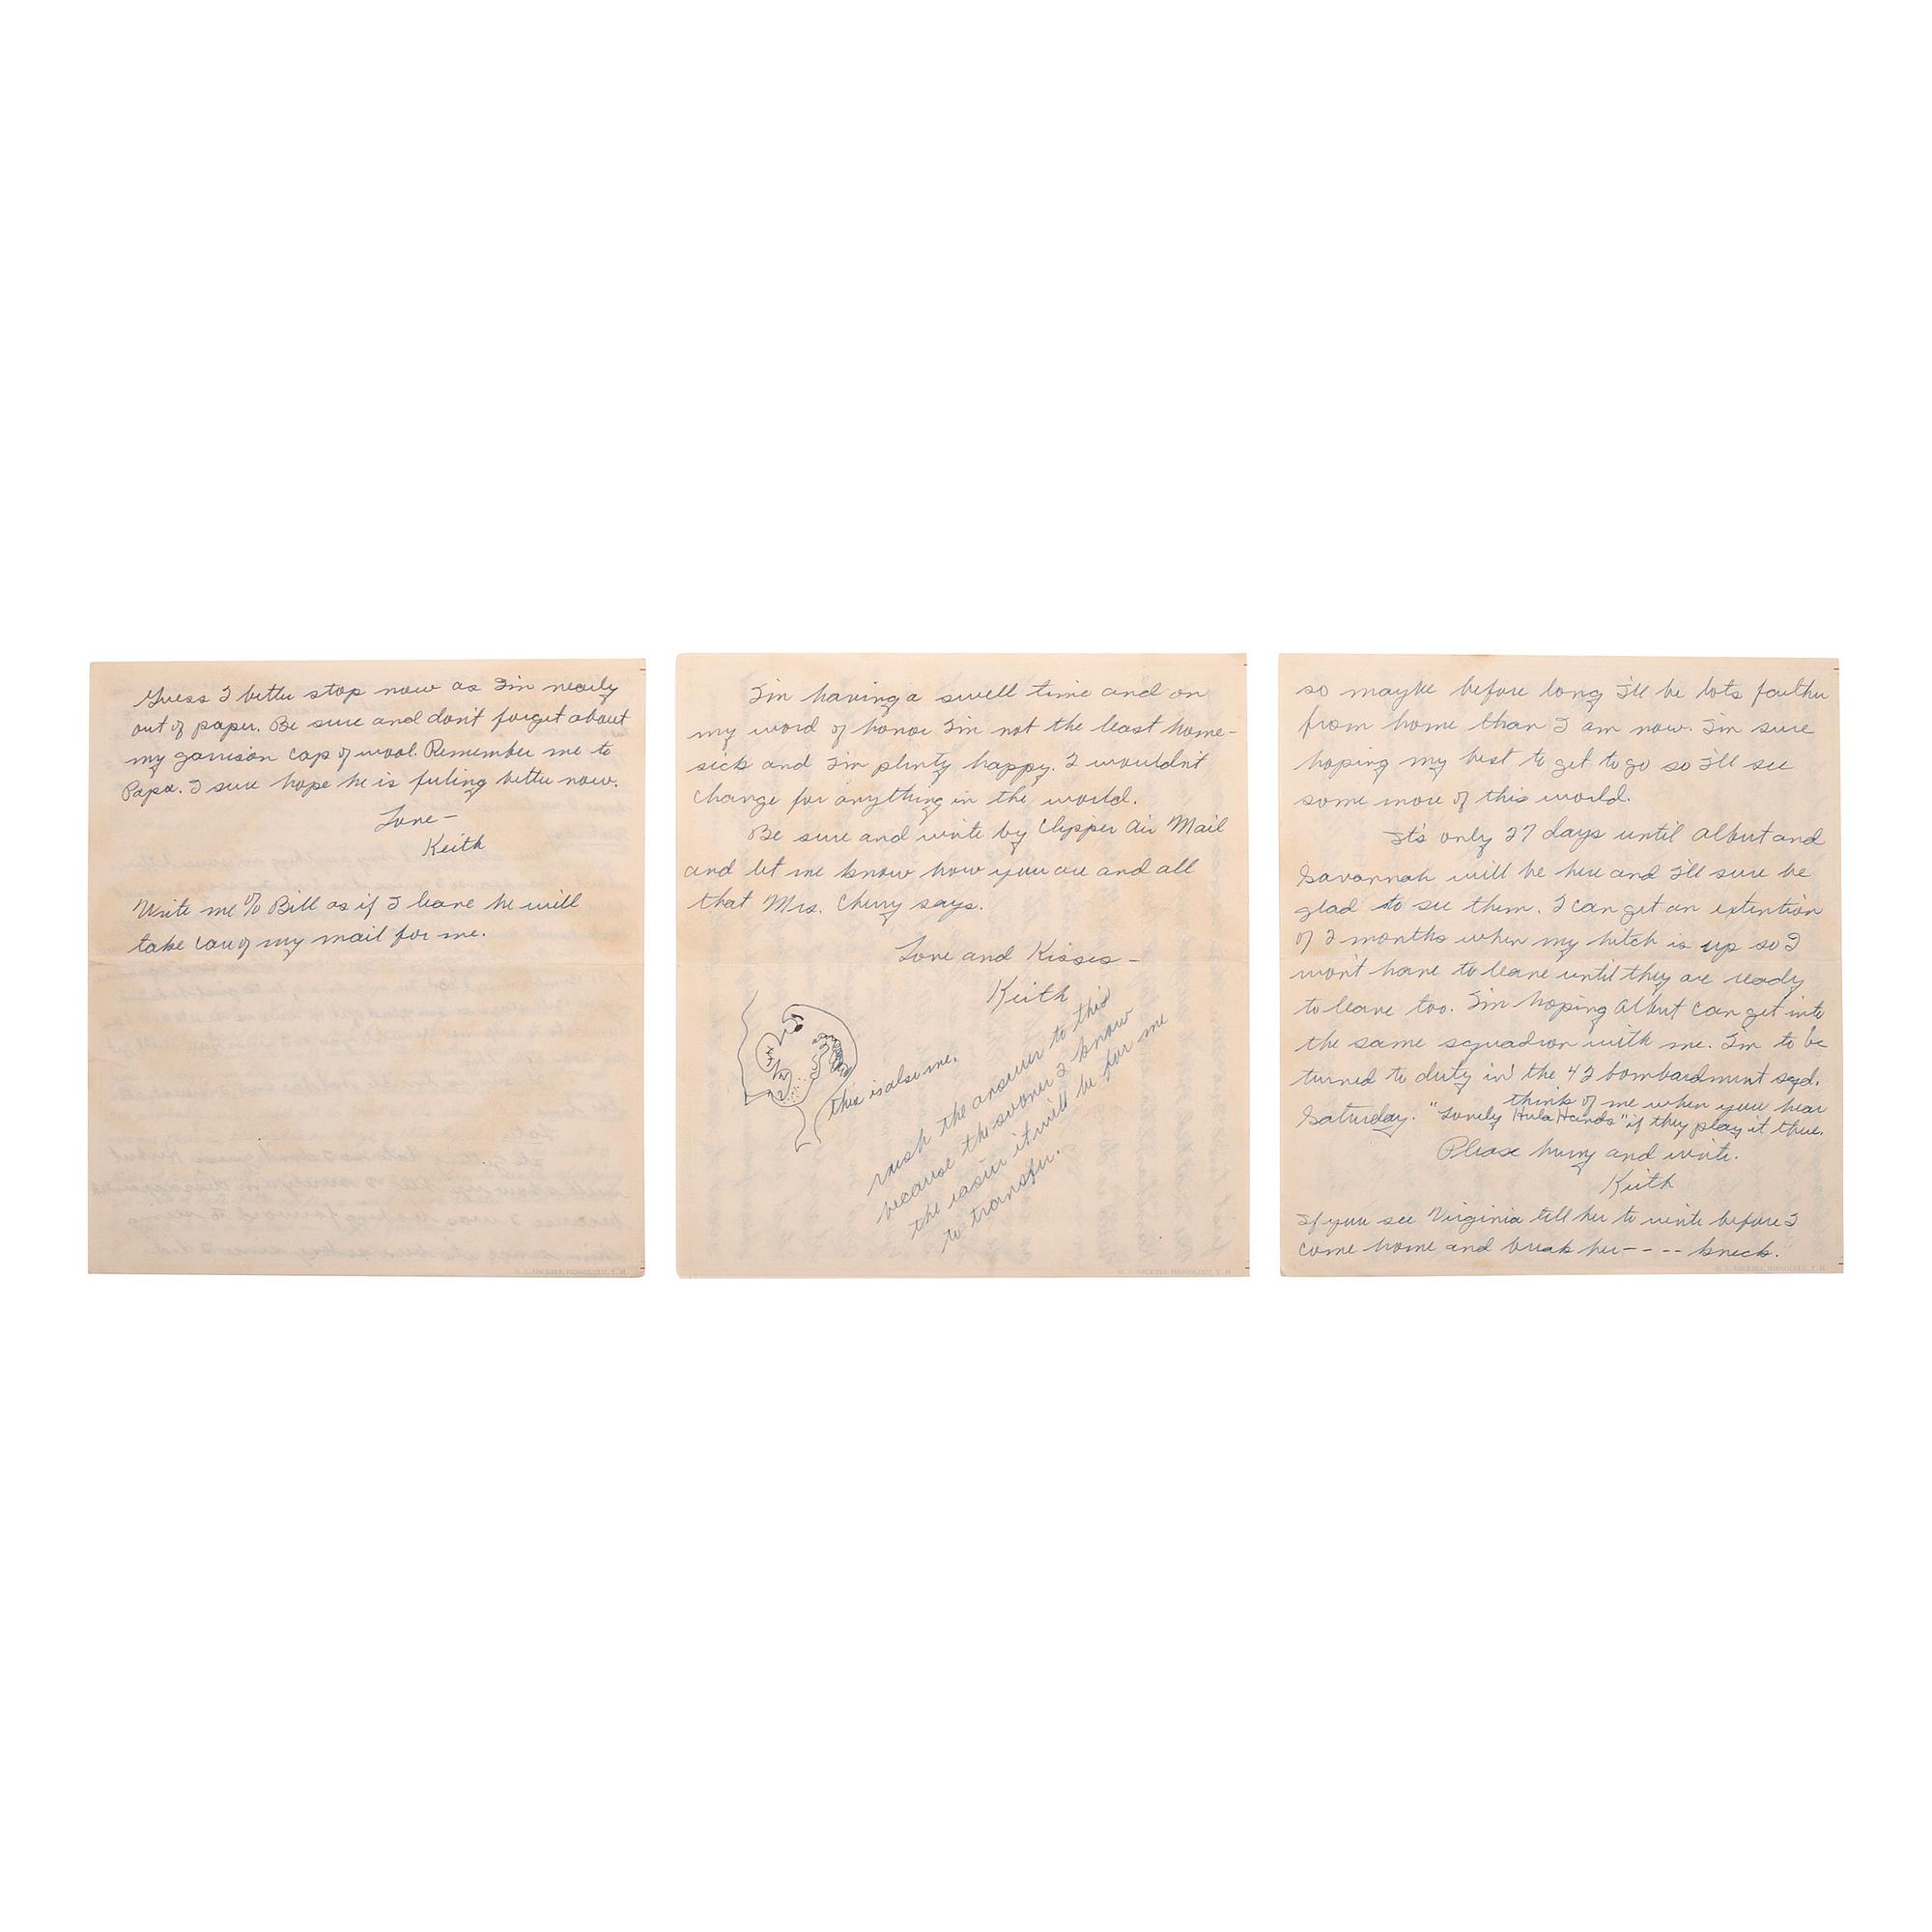 Guess I better stop now as I'm nearly
out of paper. Be sure and don't forget about
my garrison cap of wool. Remember me to
Papa. I sure hope he is feeling better now.
Love –
Keith
Write me % Bill as if I leave he will
take care of my mail for me.
I'm having a swell time and on
my word of honor I'm not the least home-
sick and I'm plenty happy. I wouldn't
change for anything in the world.
Be sure and write by Clipper Air Mail
and let me know how you are and all
that Mrs. Cherry says.
Love and Kisses –
Keith
this is also me.
rush the answer to this
because the sooner I know
the easier it will be for me
to transfer.
so maybe before long I'll be lots farther
from home than I am now. I'm sure
hoping my best to get to go so I'll see
some more of this world.
It's only 27 days until Albert and
Savannah will be here and I'll sure be
glad to see them. I can get an extention
of 2 months when my hitch is up so I
won't have to leave until they are ready
to leave too. I'm hoping Albert can get into
the same squadron with me. I'm to be
turned to duty in the 42 bombardment sqd.
Saturday. think of me when you hear
"Lovely Hula Hands" if they play it there.
Please hurry and write.
Keith
If you see Virginia tell her to write before I
come home and break her - - - - kneck.